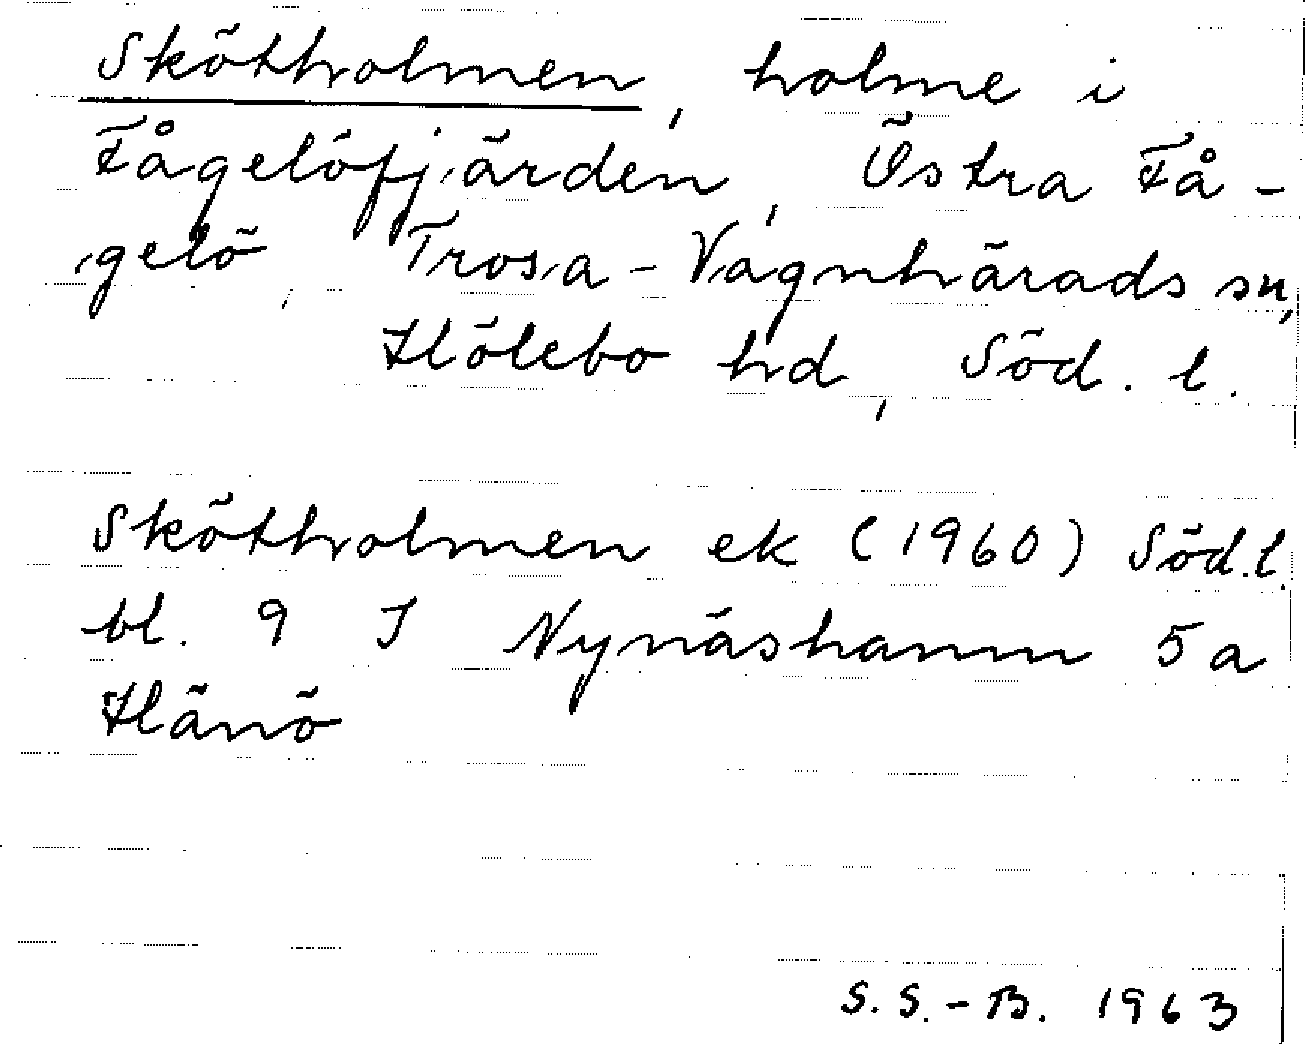 Skötholmen, holme i
Fågelöfjärden, Östra Få-
gelö, Trosa-Vagnhärads sn,
Hölebo hd, Söd. l.
Skötholmen ek (1960) Söd.l.
bl. 9 I Nynäshamn 5a
Hänö
S.S.-B. 1963